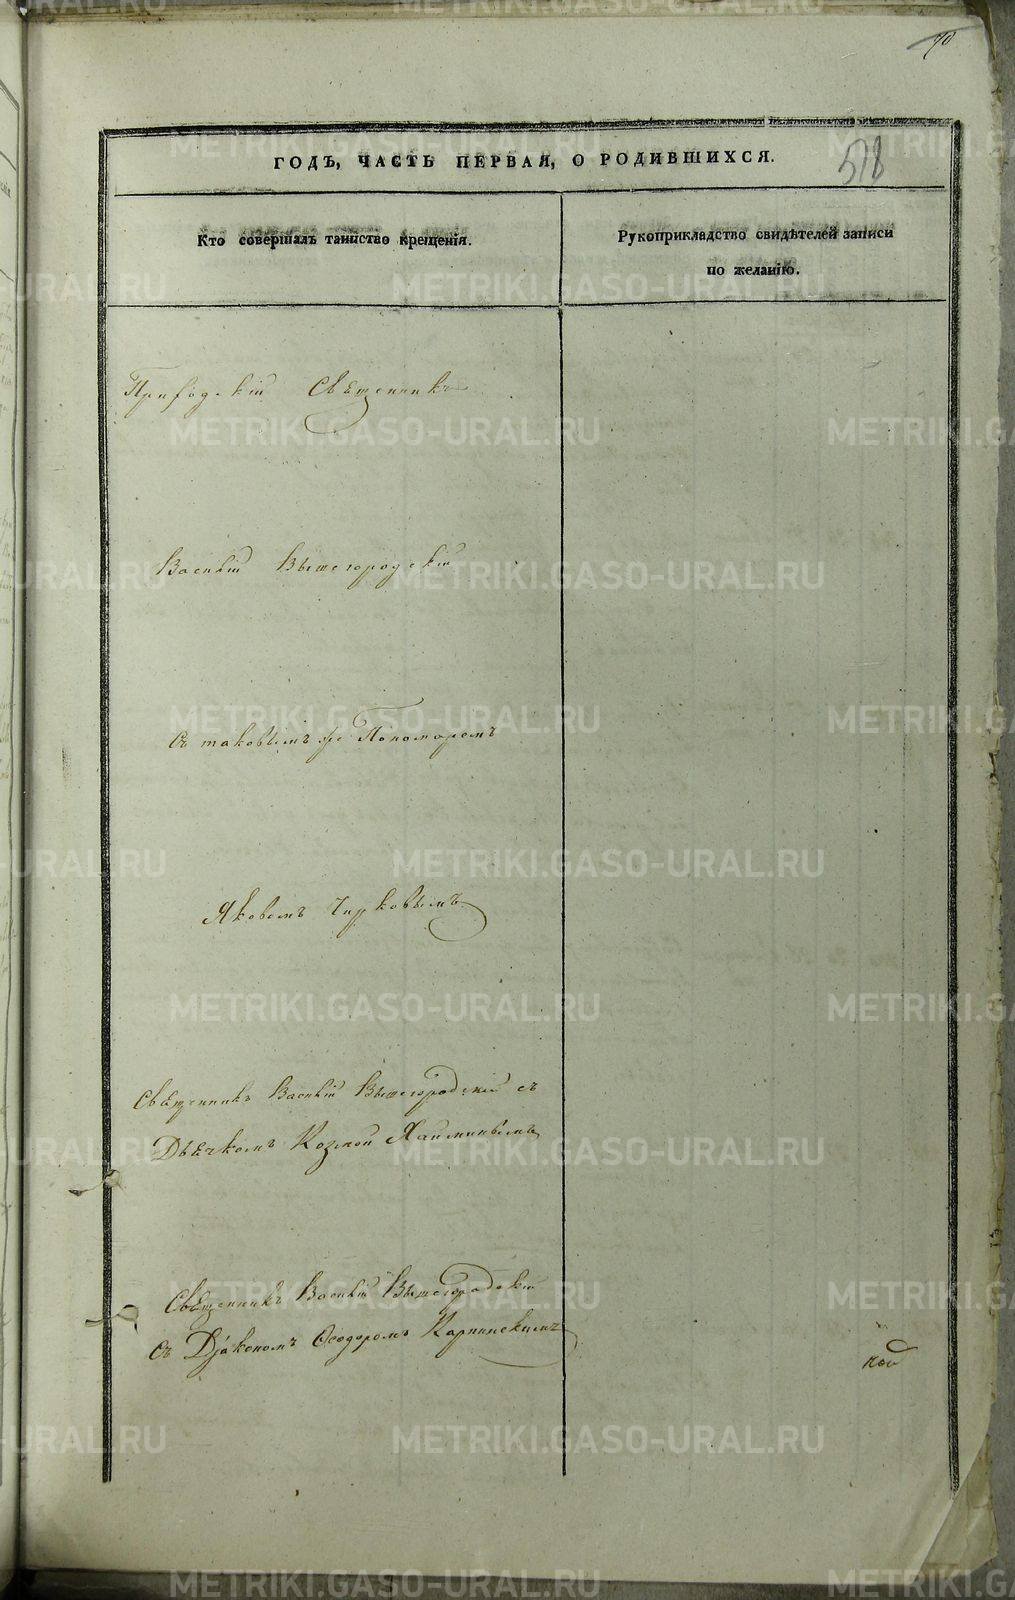 70
ГОДЪ, ЧАСТЬ ПЕРВАЯ, О РОДИВШИХСЯ.
518
Кто совершалъ таинство крещенія.
Рукоприкладство свидѣтелей записи
по желанію.
Приходскій Священникъ
Василій Вышегородскій
Съ таковымъ же Пономаремъ
Яковомъ Чирковымъ
Священникъ Василій Вышегородскій съ
Дьячкомъ Козмой Хайминымъ
Священникъ Василій Вышегородскій
съ Діакономъ Ѳеодоромъ Карпинскимъ
METRIKI.GASO-URAL.RU